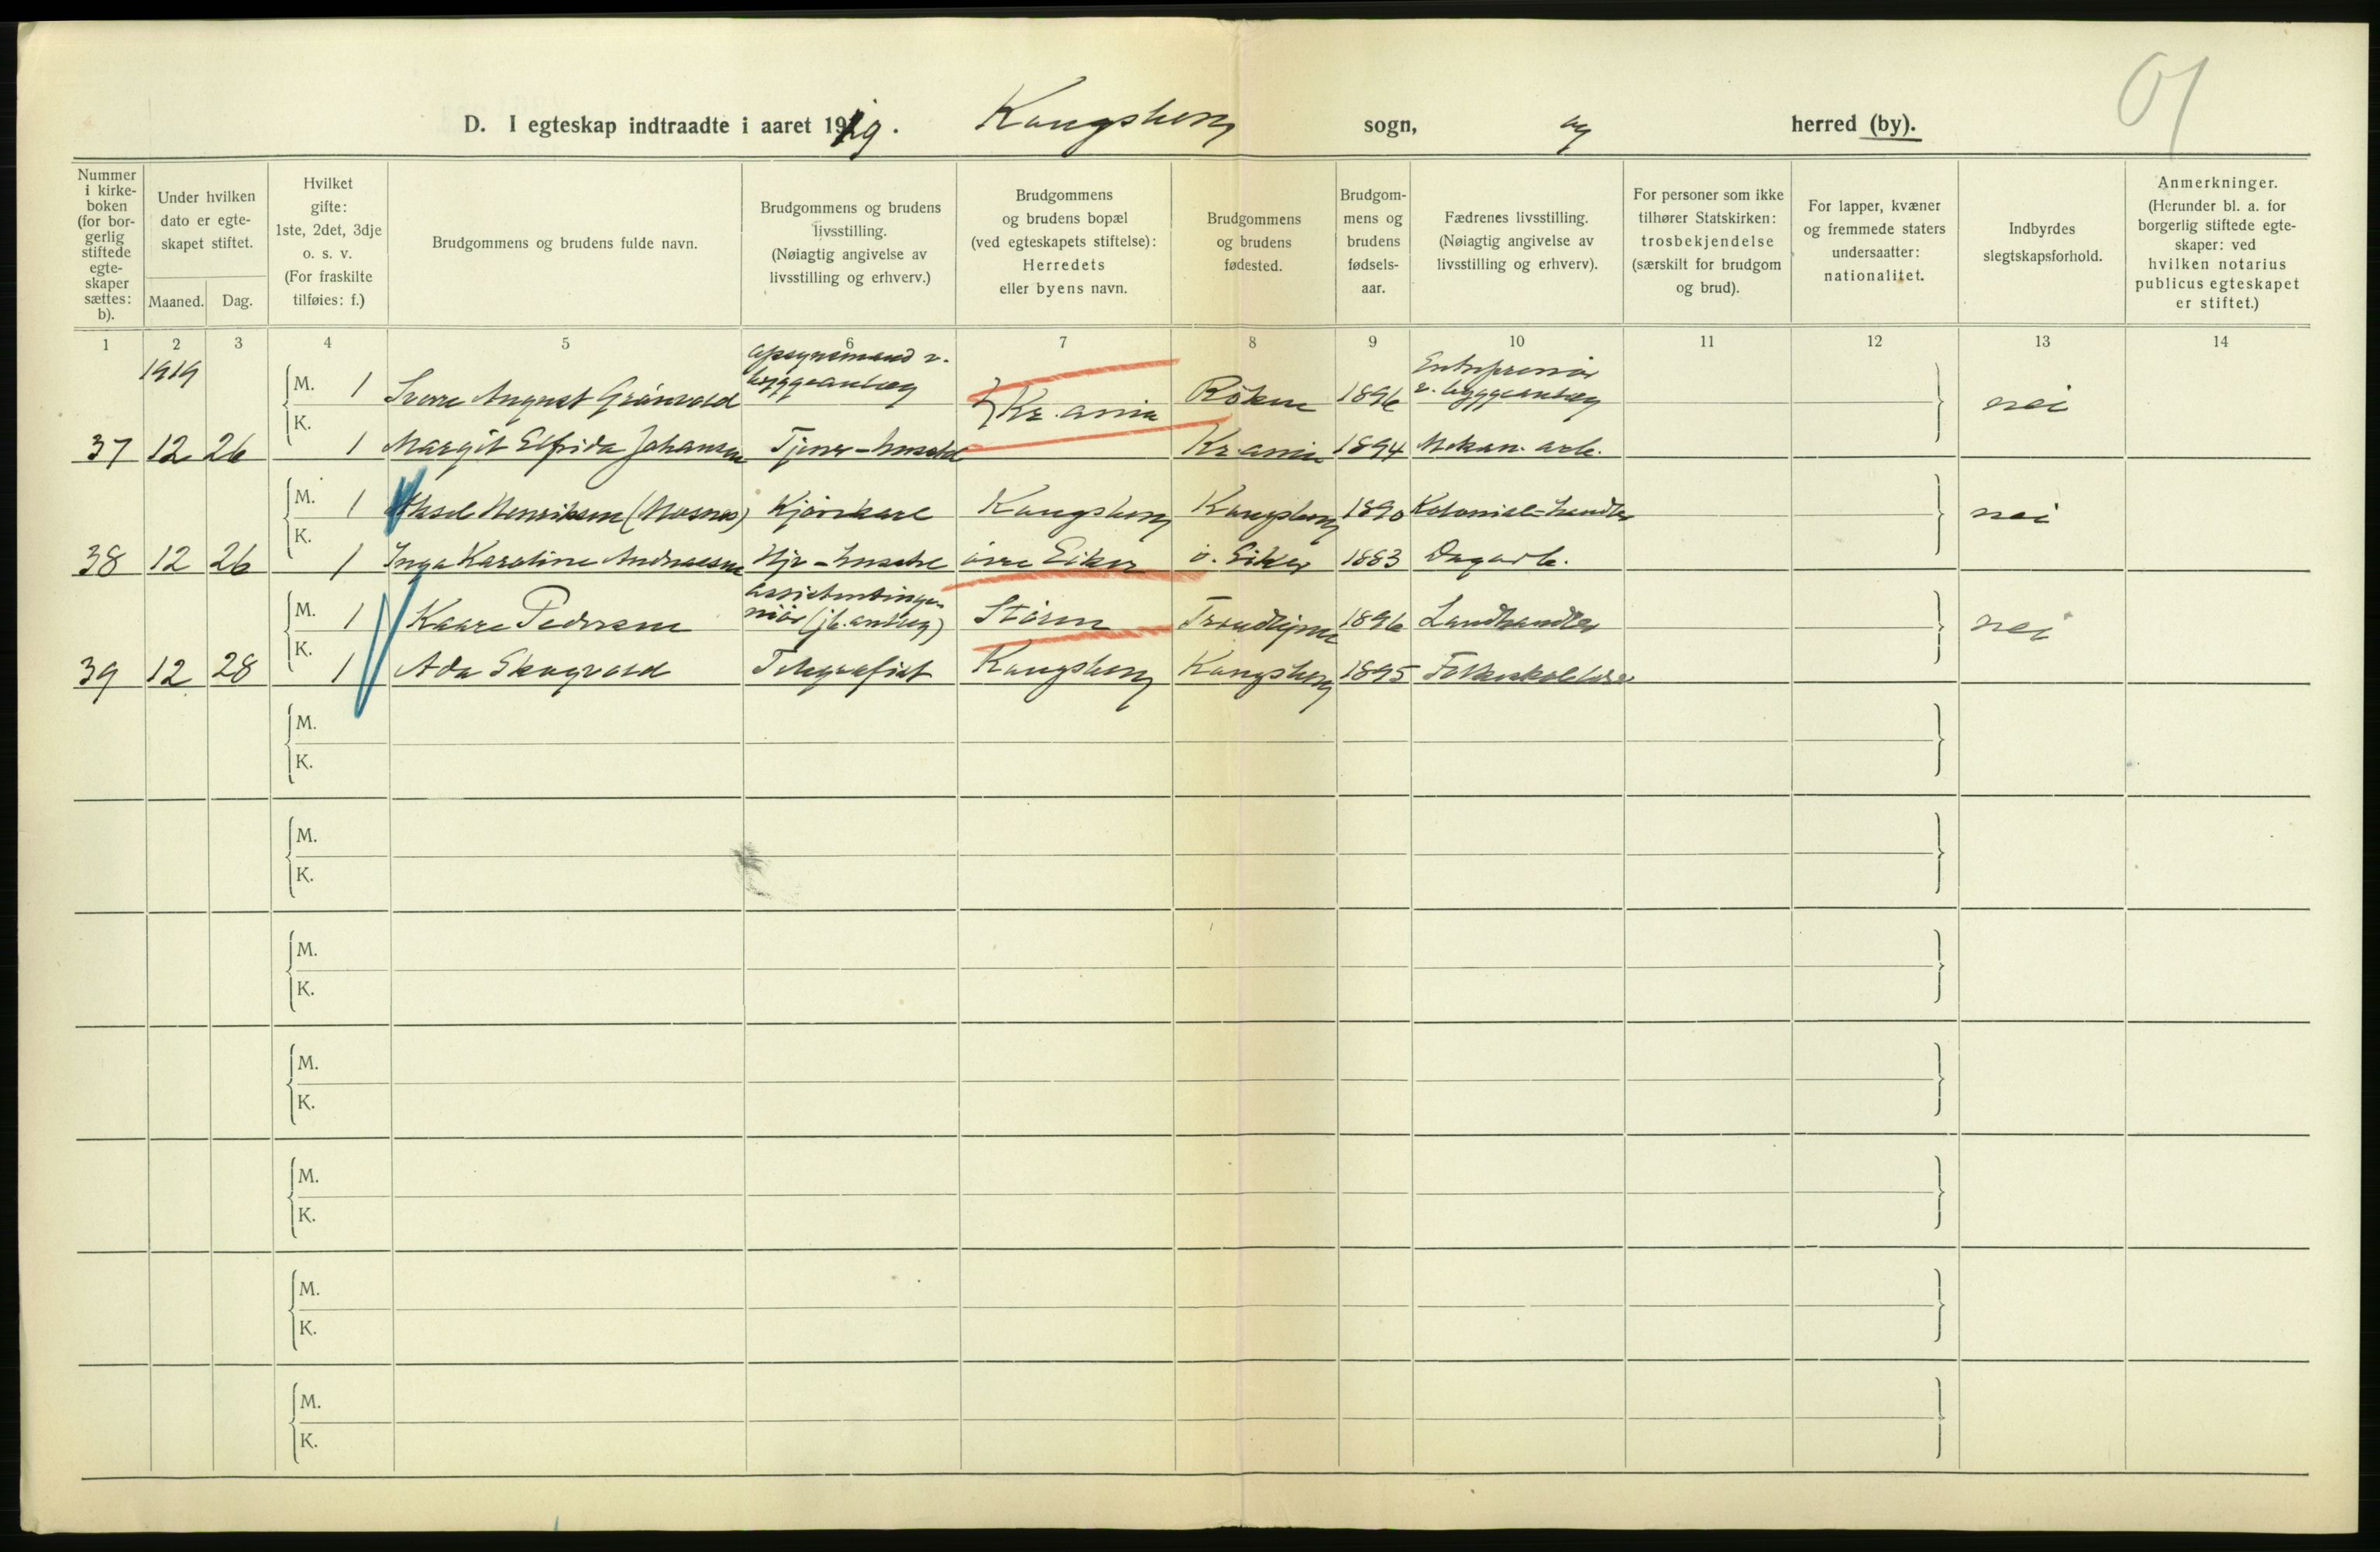 D. I egteskap indtraadte i aaret 1919. Kongsberg sogn, og herred (by).
01
Nummer i kirke-boken (for bor-gerlig stiftede egte-skaper sættes: b).
Under hvilken dato er egte-skapet stiftet.
Maaned. Dag.
Hvilket gifte: 1ste, 2det, 3dje o. s. v. (For fraskilte tilføies: f.)
Brudgommens og brudens fulde navn.
Brudgommens og brudens livsstilling. (Nøiagtig angivelse av livsstilling og erhverv.)
Brudgommens og brudens bopæl (ved egteskapets stiftelse): Herredets eller byens navn.
Brudgommens og brudens fødested.
Brudgom-mens og brudens fødsels-aar.
Fædrenes livsstilling. (Nøiagtig angivelse av livsstilling og erhverv).
For personer som ikke tilhører Statskirken: trosbekjendelse (særskilt for brudgom og brud).
For lapper, kvæner og fremmede staters undersaatter: nationalitet.
Indbyrdes slegtskapsforhold.
Anmerkninger. (Herunder bl. a. for borgerlig stiftede egte-skaper: ved hvilken notarius publicus egteskapet er stiftet.)
1 2 3 4 5 6 7 8 9 10 11 12 13 14
1919 M. 1 Sverre August Grönvold opsynsmand v. byggeanlæg Kr.ania Röken 1896 Entreprenör v. byggeanlæg nei
37 12 26 K. 1 Margit Elfrida Johansen Tjener-husstel Kr.ania 1894 Mekan. arb.
M. 1 Aksel Henriksen (Mosnes) Kjörekarl Kongsberg Kongsberg 1890 Kolonial-handler nei
38 12 26 K. 1 Inga Karoline Andreasen Hjr-husstel övre Eiker ö. Eiker 1883 Dagarb.
M. 1 Kaare Pedersen assistentinge-niör (jb. anlæg) Stören Trondhjem 1896 Landhandler nei
39 12 28 K. 1 Ada Skogvold Telegrafist Kongsberg Kongsberg 1895 Folkeskolelærer
M.
K.
M.
K.
M.
K.
M.
K.
M.
K.
M.
K.
M.
K.